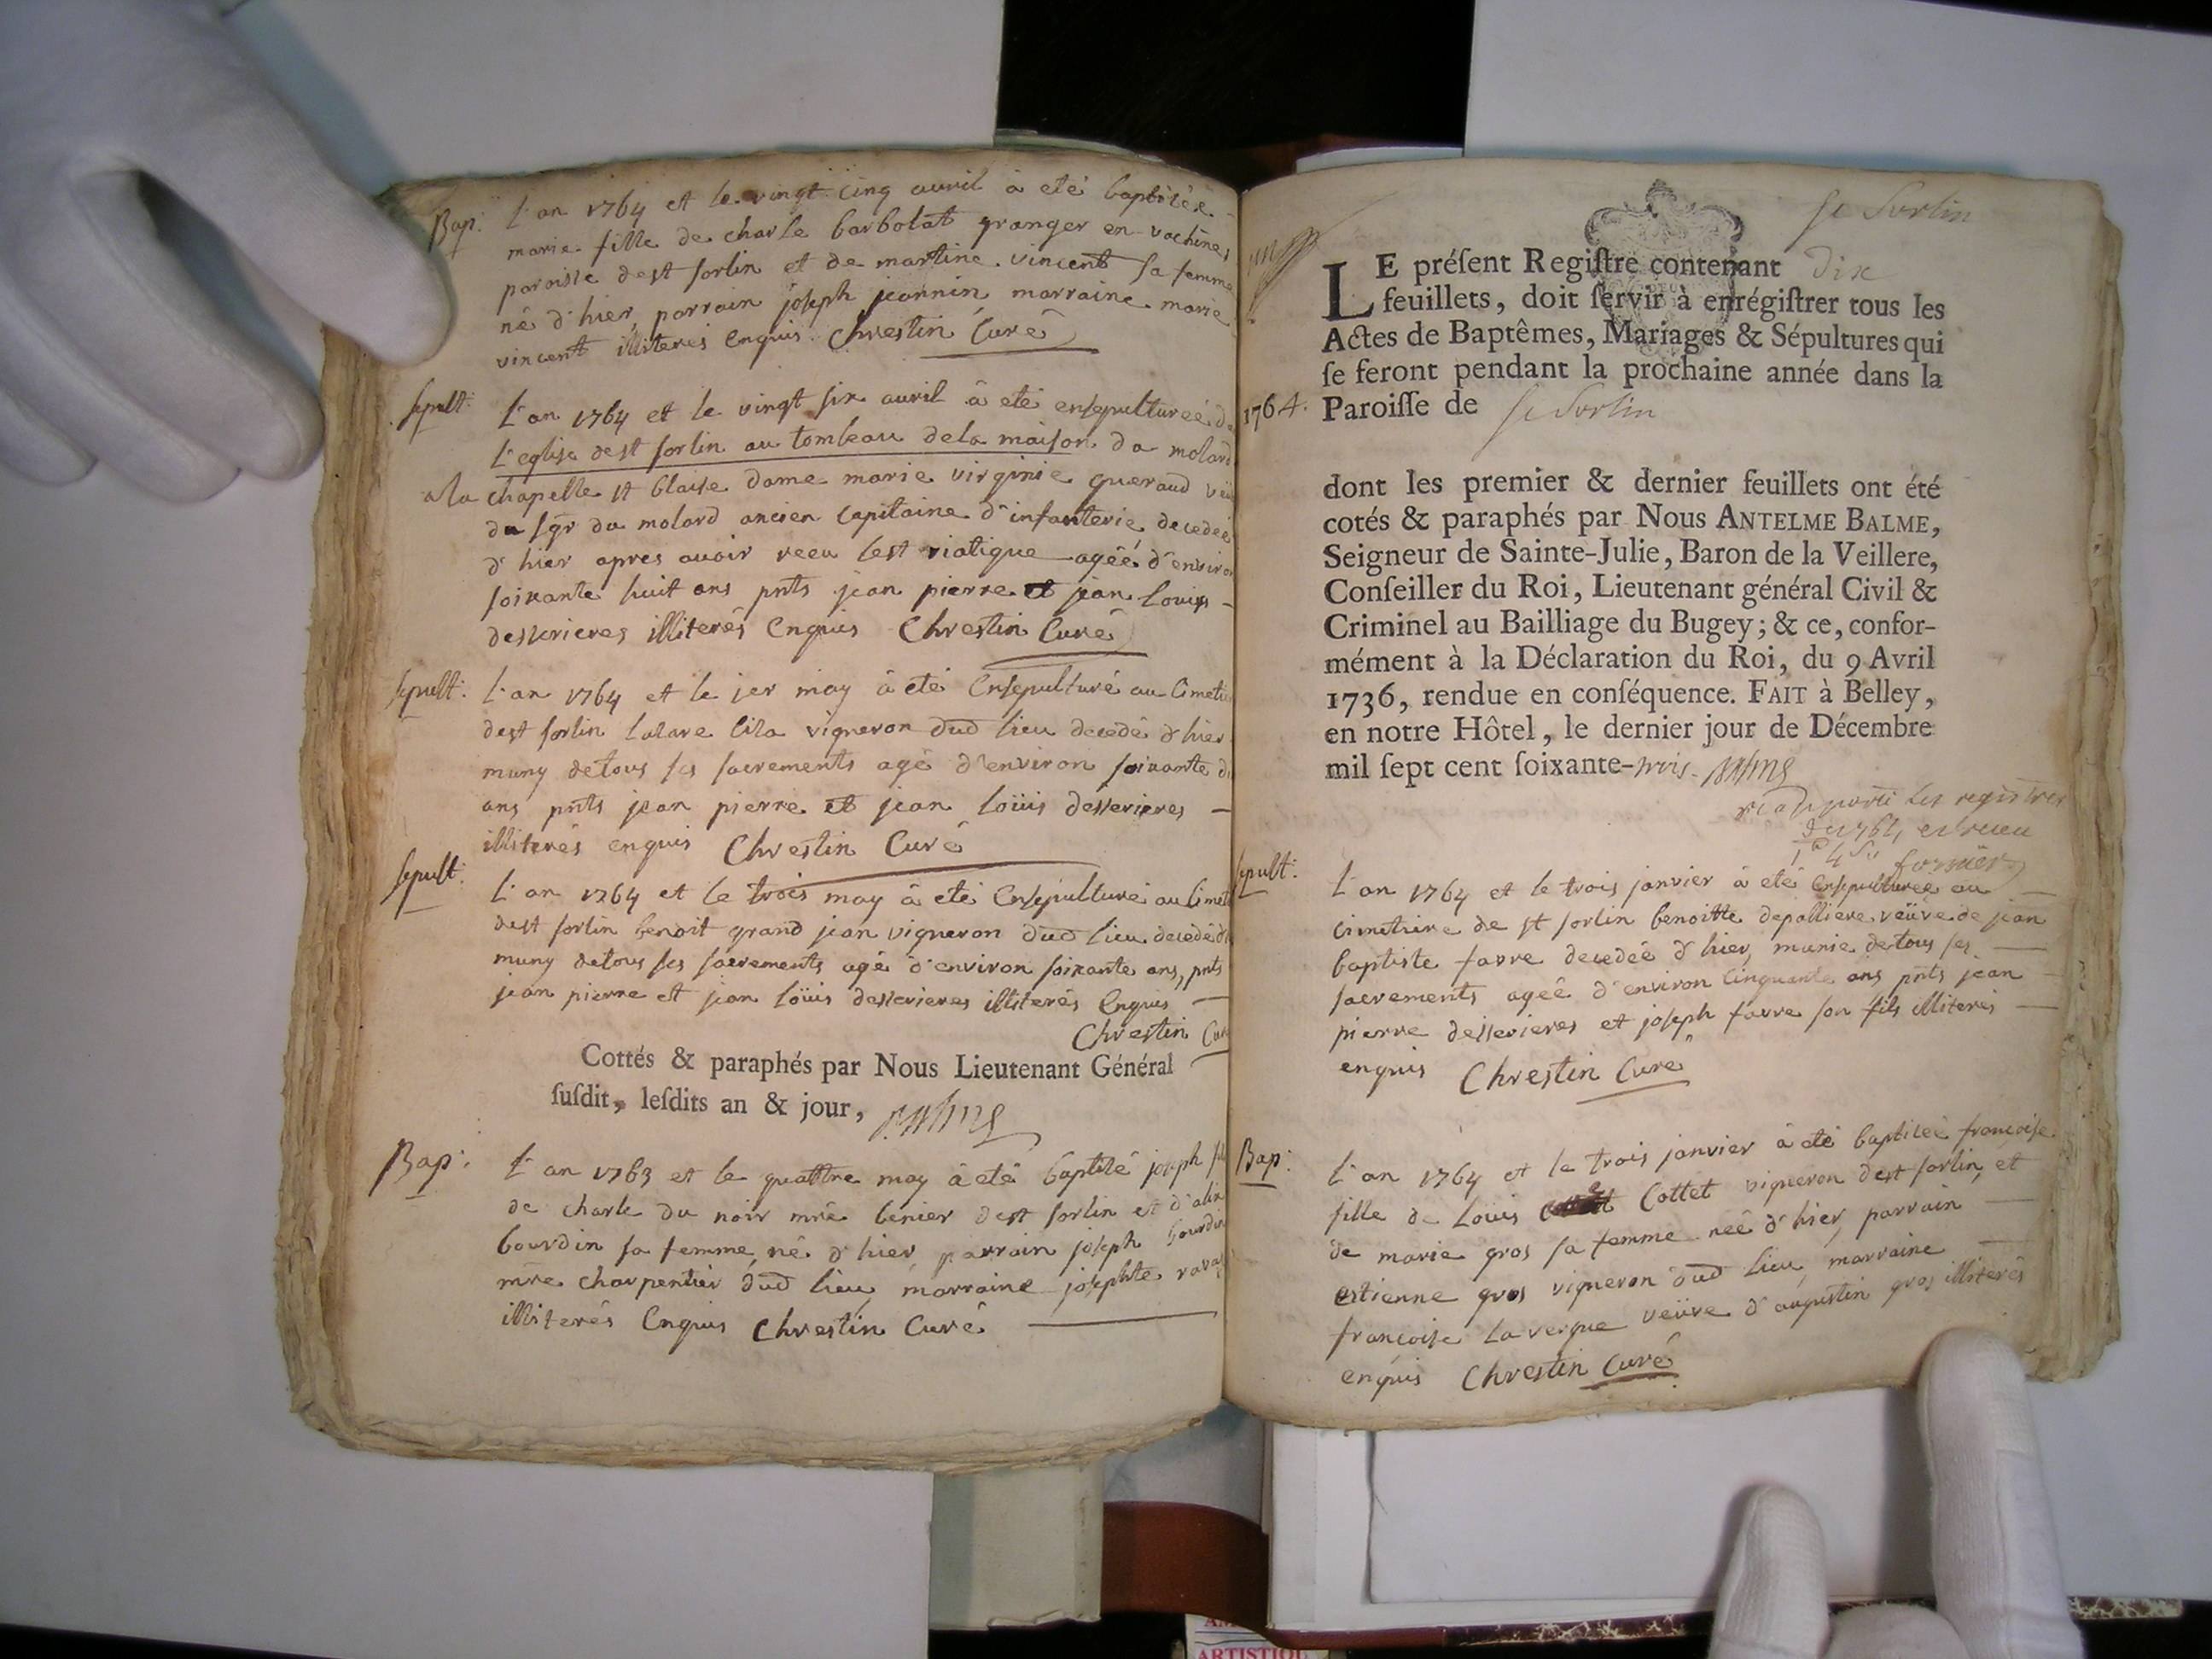 Bap: L'an 1764 et le vingt cinq auvril à eté baptisée
marie fille de charle barbolat granger en vachines
paroisse dest sorlin et de martine vincent sa femme
né d'hier, parrain joseph jeannin marraine marie
vincent illiterés Enquis Chrestin Curé
sepult: L'an 1764 et le vingt six auvril à eté ensepultureé
L'eglise dest sorlin au tombeau dela maison du molard
a la chapelle st blaise dame marie virginie gueraud
du sgr du molard ancien capitaine d'infanterie decedeé
d'hier apres avoir receu lest viatique ageé d'environ
soixante huit ans pnts jean pierre et jean Louis
desserieres illiterés Enquis Chrestin Curé
sepult: L'an 1764 et le ier may à eté Ensepulturé au Cimeti
dest sorlin lazare vigneron dud lieu decedé d'hier
muny detous ses sacrements agé d'environ soixante
ans pnts jean pierre et jean Loüis desserieres
illiterés enquis Chrestin Curé
sepult: L'an 1764 et le trois may à eté Ensepulturé au Cimeti
dest sorlin benoit grand jean vigneron dud lieu decedé
muny detous ses sacrements agé d'environ soixante ans, pnts
jean pierre et jean Loüis desserieres illiterés Enquis
Chrestin Cur
Cottés & paraphés par Nous Lieutenant Général
ſuſdit, leſdits an & jour,
Bap: L'an 1763 et le quattre may à eté baptisé joseph
de charle du noir mre benier dest sorlin et d'
bourdin sa femme, né d'hier, parrain joseph bourdin
mre charpentier dud lieu, marraine josephte
illiterés Enquis Chrestin Curé
st Sorlin
LE préſent Regiſtre contenant dix
feuillets, doit ſervir à enrégiſtrer tous les
Actes de Baptêmes, Mariages & Sépultures qui
ſe feront pendant la prochaine année dans la
1764. Paroiſſe de st Sorlin
dont les premier & dernier feuillets ont été
cotés & paraphés par Nous ANTELME BALME,
Seigneur de Sainte-Julie, Baron de la Veillere,
Conſeiller du Roi, Lieutenant général Civil &
Criminel au Bailliage du Bugey; & ce, confor-
mément à la Déclaration du Roi, du 9 Avril
1736, rendue en conſéquence. FAIT à Belley,
en notre Hôtel, le dernier jour de Décembre
mil ſept cent ſoixante-trois.
les registres
sepult: L'an 1764 et le trois janvier à eté Ensepultureé au
cimetiere de st sorlin benoitte depalliere veüve de jean
baptiste favre decedeé d'hier, munie detous ses
sacrements ageé d'environ Cinquante ans pnts jean
pierre desserieres et joseph favre son fils illiterés
enquis Chrestin Curé
Bap: L'an 1764 et le trois janvier à eté baptiseé francoise
fille de Loüis Cottet vigneron dest sorlin, et
de marie gros sa femme neé d'hier, parrain
estienne gros vigneron dud lieu, marraine
francoise Lavergue veüve d'augustin gros illiterés
enquis Chrestin Curé
ARTISTIQ